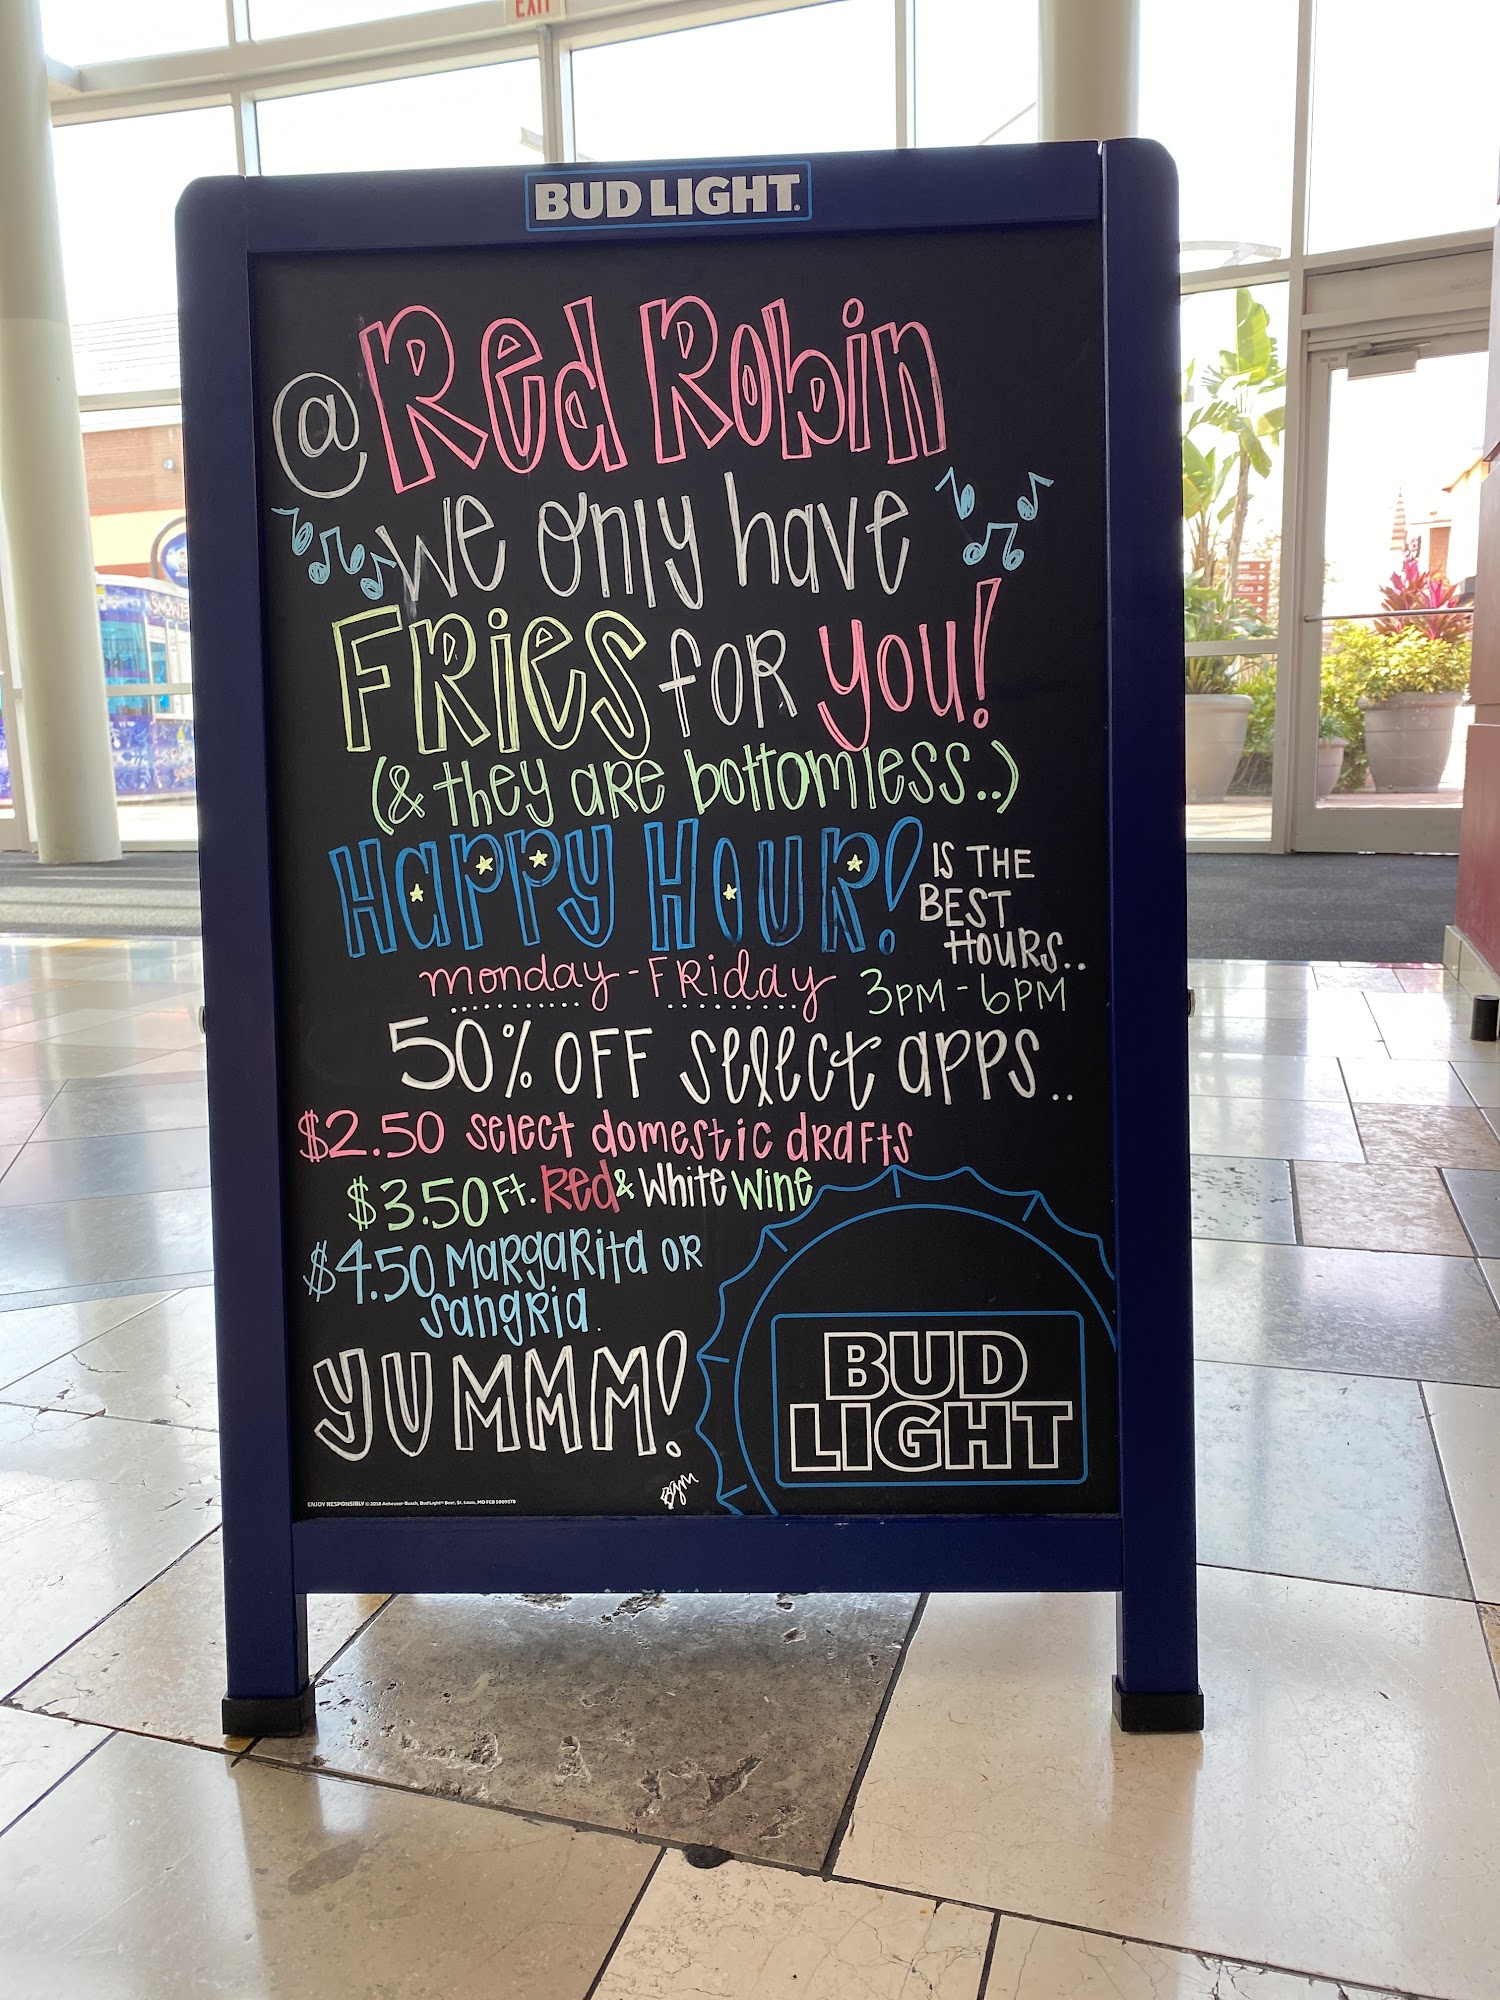 EXIT
BUD LIGHT.
@ Red Robin
We only have
FRieS foR you!
(& they aRe bottomless..)
Happy HouR! IS THE
BEST
HOURS..
monday - FRiday 3PM - 6PM
50% OFF select apps..
$2.50 select domestic dRafts
$3.50 Ft. Red & White Wine
$4.50 MaRgaRita oR
SangRia.
YUMMM!
BUD
LIGHT
Bgm
ENJOY RESPONSIBLY © 2018 Anheuser-Busch, Bud Light® Beer, St. Louis, MO